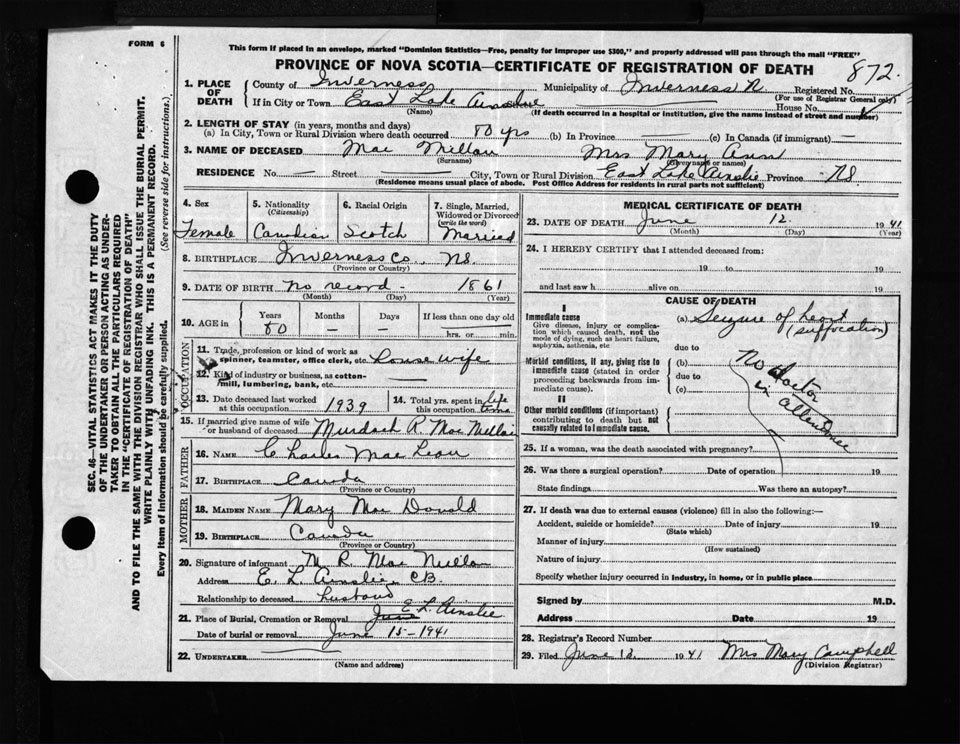 FORM 6
This form if placed in an envelope, marked "Dominion Statistics—Free, penalty for improper use $300," and properly addressed will pass through the mail "FREE"
PROVINCE OF NOVA SCOTIA—CERTIFICATE OF REGISTRATION OF DEATH
872.
1. PLACE OF DEATH
County of Inverness
Municipality of Inverness R
Registered No.
(For use of Registrar General only)
If in City or Town East Lake Ainslie
House No.
(Name)
(If death occurred in a hospital or institution, give the name instead of street and number)
2. LENGTH OF STAY (in years, months and days)
(a) In City, Town or Rural Division where death occurred 80 yrs (b) In Province — (c) In Canada (if immigrant) —
3. NAME OF DECEASED Mac Millan Mrs Mary Ann
(Surname) (Given name or names)
RESIDENCE No. — Street — City, Town or Rural Division East Lake Ainslie Province NS.
(Residence means usual place of abode. Post Office Address for residents in rural parts not sufficient)
4. Sex
Female
5. Nationality
(Citizenship)
Canadian
6. Racial Origin
Scotch
7. Single, Married, Widowed or Divorced
(write the word)
Married
8. BIRTHPLACE Inverness Co., NS.
(Province or Country)
9. DATE OF BIRTH no record 1861
(Month) (Day) (Year)
10. AGE in
Years Months Days If less than one day old
80 — — hrs. or min.
OCCUPATION
11. Trade, profession or kind of work as
spinner, teamster, office clerk, etc. House wife
12. Kind of industry or business, as cotton-
mill, lumbering, bank, etc. —
13. Date deceased last worked
at this occupation 1939
14. Total yrs. spent in
this occupation life time
15. If married give name of wife
or husband of deceased Murdoch R. Mac Millan
FATHER
16. NAME Charles Mac Lean
17. BIRTHPLACE Canada
(Province or Country)
MOTHER
18. MAIDEN NAME Mary Mac Donald
19. BIRTHPLACE Canada
(Province or Country)
20. Signature of informant M R. Mac Millan
Address E. L. Ainslie, CB.
Relationship to deceased husband
21. Place of Burial, Cremation or Removal June E L. Ainslie
Date of burial or removal June 15-1941
22. UNDERTAKER
(Name and address)
MEDICAL CERTIFICATE OF DEATH
23. DATE OF DEATH June 12. 1941
(Month) (Day) (Year)
24. I HEREBY CERTIFY that I attended deceased from:
19 to 19
and last saw h alive on 19
CAUSE OF DEATH
I
Immediate cause
Give disease, injury or complica-
tion which caused death, not the
mode of dying, such as heart failure,
asphyxia, asthenia, etc
Morbid conditions, if any, giving rise to
immediate cause (stated in order
proceeding backwards from im-
mediate cause).
II
Other morbid conditions (if important)
contributing to death but not
causally related to immediate cause.
(a) Seizure of heart
(suffocation)
due to
(b)
due to
(c)
No doctor
in attendance
25. If a woman, was the death associated with pregnancy?
26. Was there a surgical operation? Date of operation 19
State findings Was there an autopsy?
27. If death was due to external causes (violence) fill in also the following:—
Accident, suicide or homicide? Date of injury 19
(State which)
Manner of injury
(How sustained)
Nature of injury
Specify whether injury occurred in industry, in home, or in public place
Signed by M.D.
Address Date 19
28. Registrar's Record Number
29. Filed June 1941 Mrs Mary Campbell
(Division Registrar)
SEC. 46—VITAL STATISTICS ACT MAKES IT THE DUTY
OF THE UNDERTAKER OR PERSON ACTING AS UNDER-
TAKER TO OBTAIN ALL THE PARTICULARS REQUIRED
IN THE "CERTIFICATE OF REGISTRATION OF DEATH"
AND TO FILE THE SAME WITH THE DIVISION REGISTRAR WHO SHALL ISSUE THE BURIAL PERMIT.
WRITE PLAINLY WITH UNFADING INK. THIS IS A PERMANENT RECORD.
Every item of information should be carefully supplied. (See reverse side for instructions.)